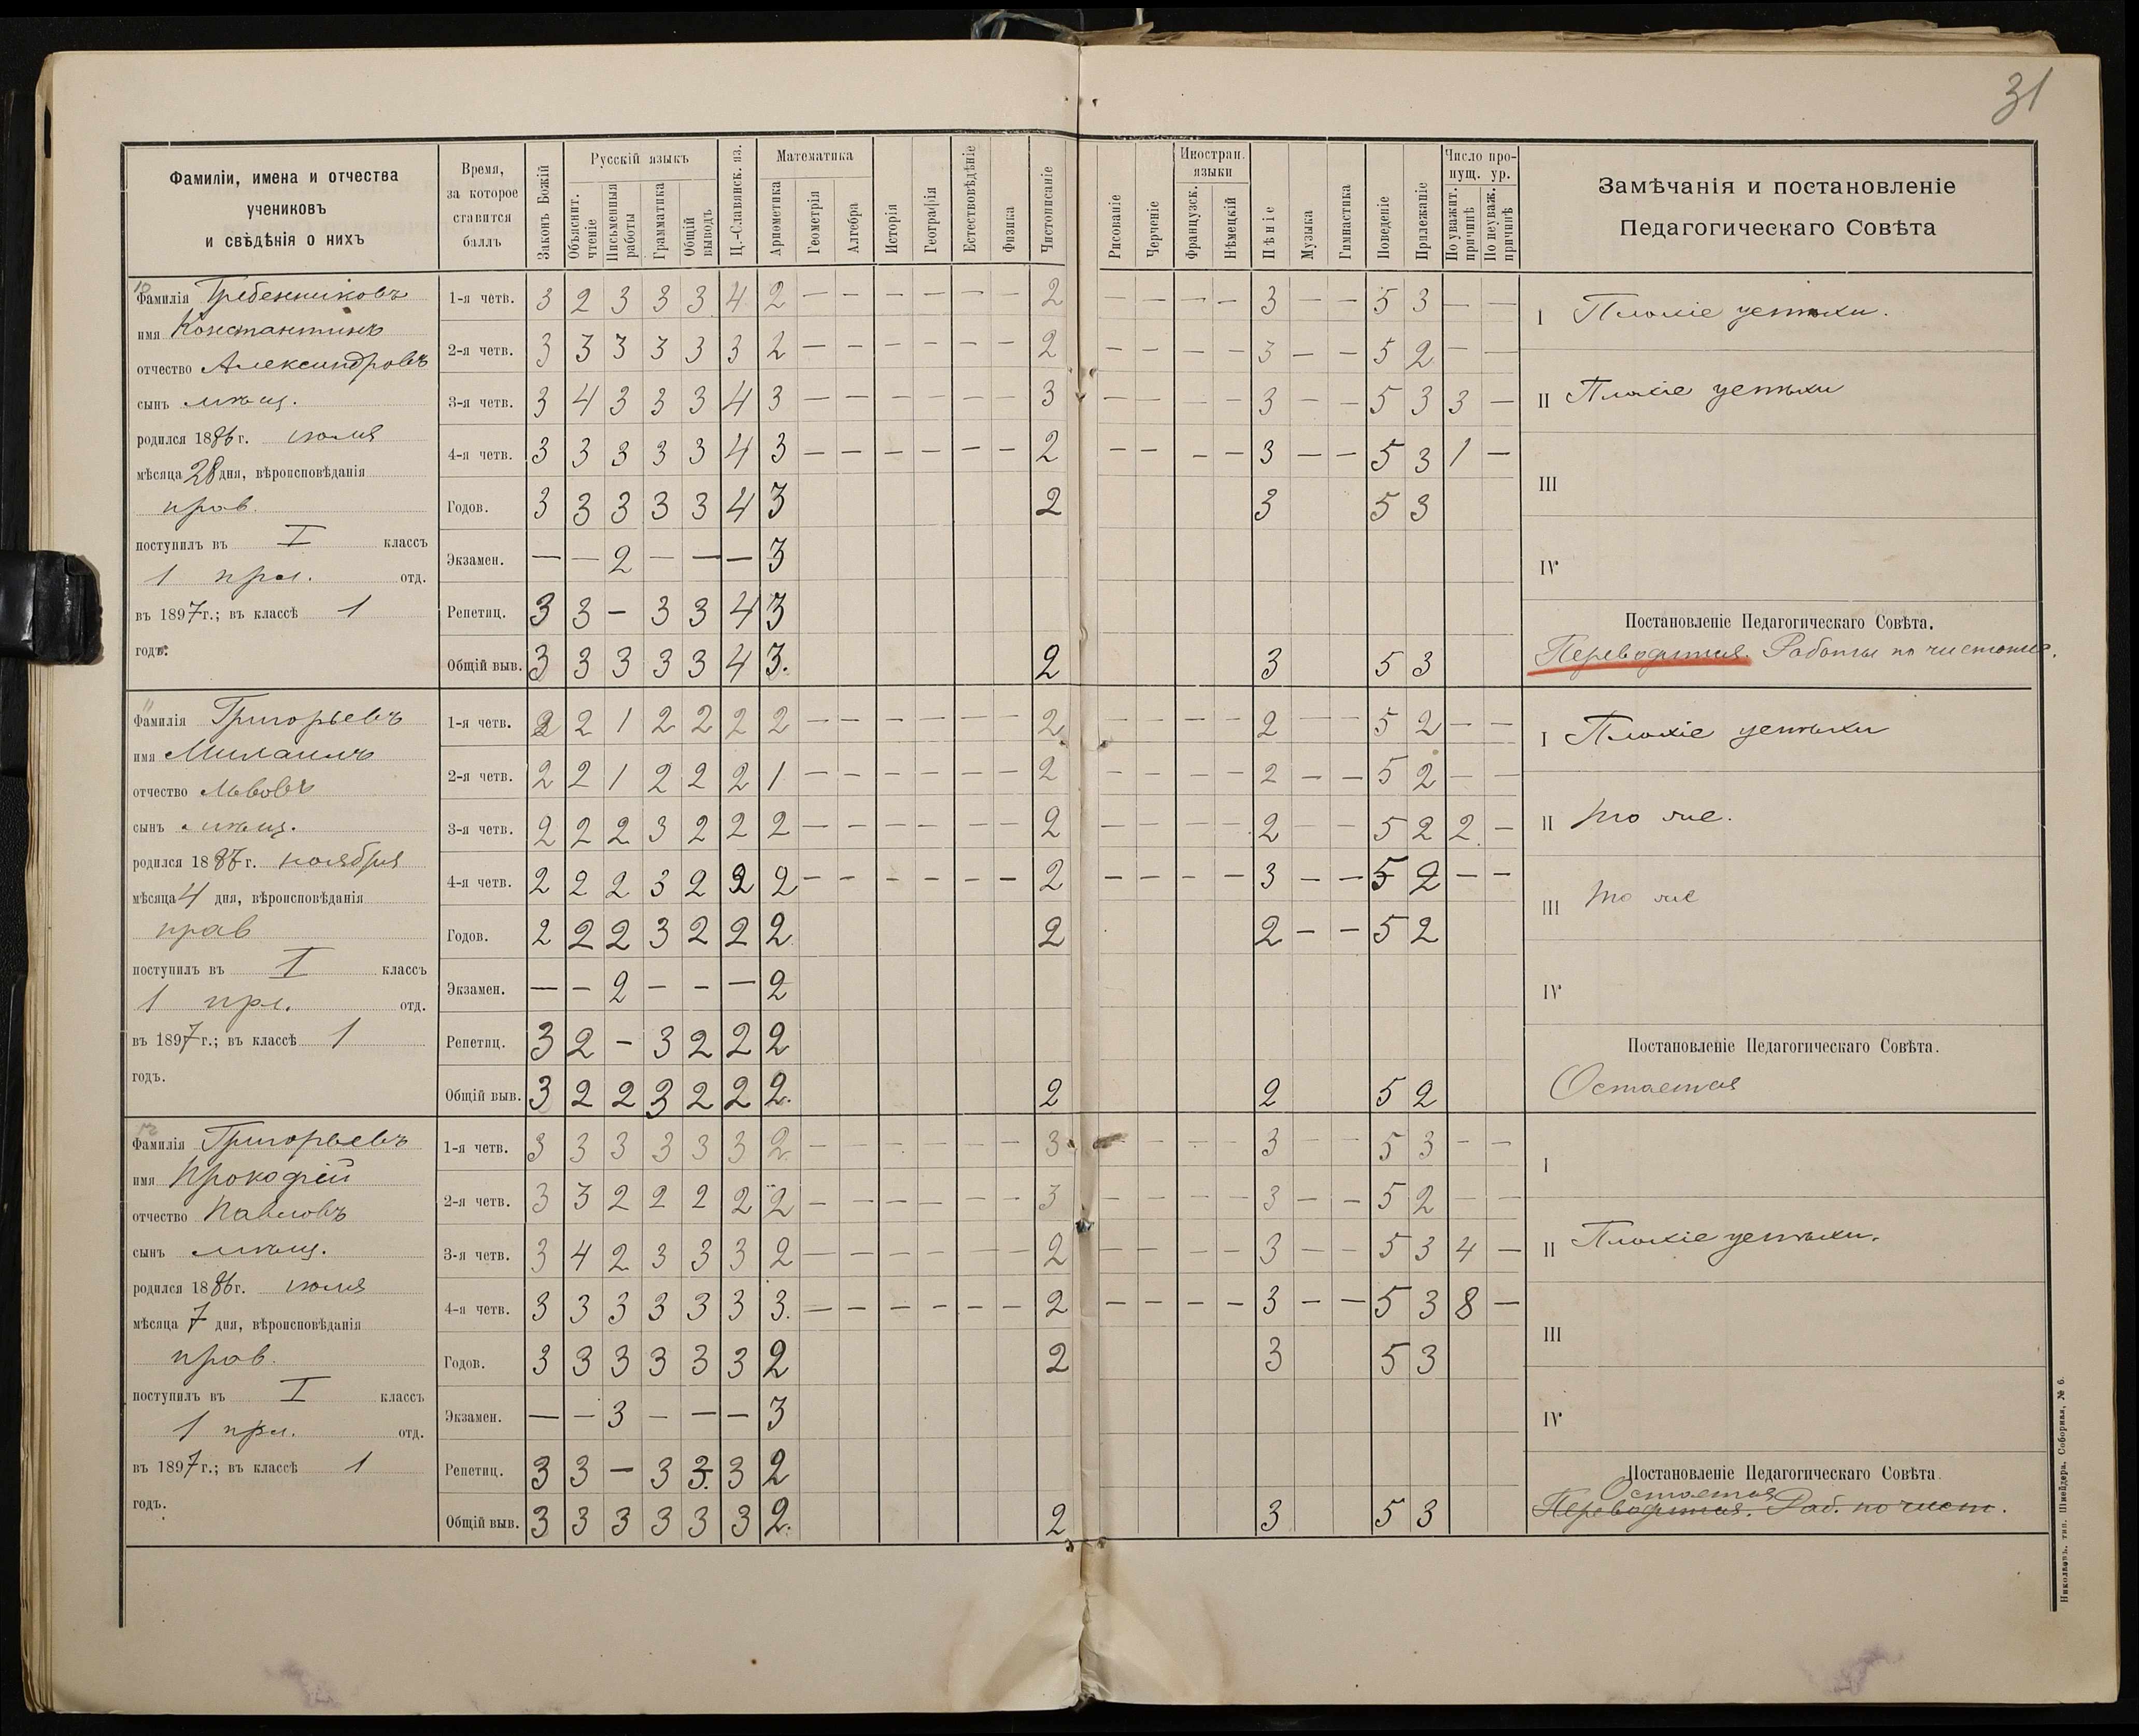 31
Фамиліи, имена и отчества
учениковъ
и свѣдѣнія о нихъ
Время,
за которое
ставится
баллъ
Законъ Божій
Русскій языкъ
Объяснит. чтеніе
Письменныя работы
Грамматика
Общій выводъ
Ц.-Славянск. яз.
Математика
Ариѳметика
Геометрія
Алгебра
Исторія
Географія
Естествовѣдѣніе
Физика
Чистописаніе
Рисованіе
Черченіе
Иностран. языки
Французск.
Нѣмецкій
Пѣніе
Музыка
Гимнастика
Поведеніе
Прилежаніе
Число пропущ. ур.
По уважит. причинѣ
По неуваж. причинѣ
Замѣчанія и постановленіе
Педагогическаго Совѣта
10
Фамилія Гребенниковъ
имя Константинъ
отчество Александровъ
сынъ мѣщ.
родился 1886 г. іюля
мѣсяца 28 дня, вѣроисповѣданія
прав.
поступилъ въ I классъ
1 прл. отд.
въ 1897 г.; въ классѣ 1
годъ.
1-я четв. 3 2 3 3 3 4 2 — — — — — — 2 — — — — 3 — — 5 3 — —
2-я четв. 3 3 3 3 3 3 2 — — — — — — 2 — — — — 3 — — 5 2 — —
3-я четв. 3 4 3 3 3 4 3 — — — — — — 3 — — — — 3 — — 5 3 3 —
4-я четв. 3 3 3 3 3 4 3 — — — — — — 2 — — — — 3 — — 5 3 1 —
Годов. 3 3 3 3 3 4 3 2 3 5 3
Экзамен. — — 2 — — — 3
Репетиц. 3 3 — 3 3 4 3
Общій выв. 3 3 3 3 3 4 3. 2 3 5 3
I Плохіе успѣхи.
II Плохіе успѣхи
III
IV
Постановленіе Педагогическаго Совѣта.
Переводится. Работы по чистопис.
11
Фамилія Григорьевъ
имя Михаилъ
отчество Львовъ
сынъ мѣщ.
родился 188 г. ноября
мѣсяца 4 дня, вѣроисповѣданія
прав
поступилъ въ I классъ
1 прл. отд.
въ 1897 г.; въ классѣ 1
годъ.
1-я четв. 2 2 1 2 2 2 2 — — — — — — 2 — — — — 2 — — 5 2 — —
2-я четв. 2 2 1 2 2 2 1 — — — — — — 2 — — — — 2 — — 5 2 — —
3-я четв. 2 2 2 3 2 2 2 — — — — — — 2 — — — — 2 — — 5 2 2 —
4-я четв. 2 2 2 3 2 2 2 — — — — — — 2 — — — — 3 — — 5 2 — —
Годов. 2 2 2 3 2 2 2 2 2 — — 5 2
Экзамен. — — 2 — — — 2
Репетиц. 3 2 — 3 2 2 2
Общій выв. 3 2 2 3 2 2 2. 2 2 5 2
I Плохіе успѣхи
II то же.
III то же
IV
Постановленіе Педагогическаго Совѣта.
Остается
12
Фамилія Григорьевъ
имя Прокофій
отчество Павловъ
сынъ мѣщ.
родился 1886 г. іюля
мѣсяца 7 дня, вѣроисповѣданія
прав.
поступилъ въ I классъ
1 прл. отд.
въ 1897 г.; въ классѣ 1
годъ.
1-я четв. 3 3 3 3 3 3 2 — — — — — — 3 — — — — 3 — — 5 3 — —
2-я четв. 3 3 2 2 2 2 2 — — — — — — 3 — — — — 3 — — 5 2 — —
3-я четв. 3 4 2 3 3 3 2 — — — — — — 2 — — — — 3 — — 5 3 4 —
4-я четв. 3 3 3 3 3 3 3. — — — — — — 2 — — — — 3 — — 5 3 8 —
Годов. 3 3 3 3 3 3 2 2 3 5 3
Экзамен. — — 3 — — — 3
Репетиц. 3 3 — 3 3. 3 2
Общій выв. 3 3 3 3 3 3 2. 2 3 5 3
I
II Плохіе успѣхи.
III
IV
Постановленіе Педагогическаго Совѣта.
Остается
Переводится. Раб. по чист.
Николаевъ. тип. Шнейдера. Соборная, № 6.